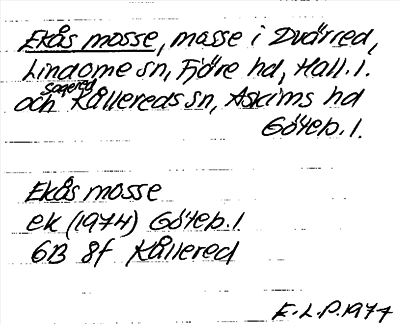 Ekås mosse, mosse i Dvärred,
Lindome sn, Fjäre hd, Hall. l.
Sagered
och Kållereds sn, Askims hd
Göteb. l.
Ekås mosse
ek (1974) Göteb. l
6B 8f Kållered
E. L. P. 1977